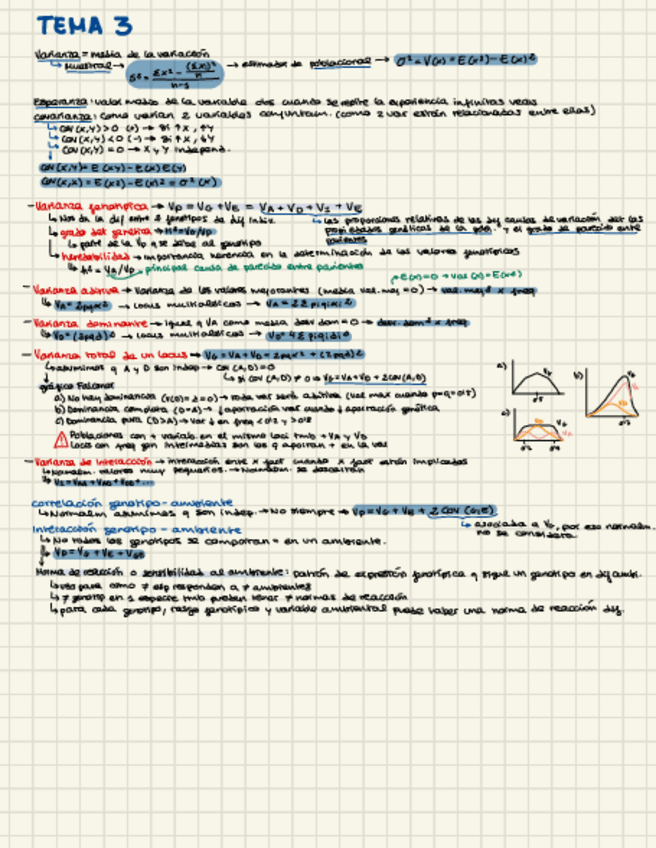 TEMA 3
Varianza = media de la variación
↳ Muestral → S² = (Σx² - (Σx)²/n) / (n-1) → estimador de poblacional → σ² = V(x) = E(x²) - E(x)²
Esperanza: valor medio de la variable dos cuando se repite la experiencia infinitas veces
covarianza: como varían 2 variables conjuntam. (como 2 var están relacionadas entre ellas)
↳ COV (X,Y) > 0 (+) → Si ↑X, ↑Y
↳ COV (X,Y) < 0 (-) → Si ↑X, ↓Y
↳ COV (X,Y) = 0 → X y Y independ.
COV (X,Y) = E (XY) - E(X) E(Y)
COV (X,X) = E (X²) - E(X)² = σ² (X)
- Varianza fenotípica → VP = VG + VE = VA + VD + VI + VE
↳ Nos da la dif entre fenotipos de dif indiv. ↳ las proporciones relativas de las dif causas de variación det las
propiedades genéticas de la pobl. y el grado de parecido entre
parientes
↳ grado det genética → H² = VG/VP
↳ parte de la VP q se debe al genotipo
↳ heredabilidad → importancia herencia en la determinación de los valores fenotípicos
↳ h² = VA/VP → principal causa de parecido entre parientes
→ E(x) = 0 → var (x) = E(x²)
- Varianza aditiva → Varianza de los valores mejorantes (media val. mej = 0) → val. mej² x freq
↳ VA = 2pqα² → Locus multialélicos → VA = 2Σ piαi²
- Varianza dominante → igual q VA como media desv dom = 0 → desv. dom² x freq
↳ VD = (2pqd)² → Locus multialélicos →
- Varianza total de un locus → VG = VA + VD = 2pqα² + (2pqd)²
↳ asumimos q A y D son indep → COV (A,D) = 0
↳ Si COV (A,D) ≠ 0 → VG = VA + VD + 2COV (A,D)
gráfica Falconer
a) No hay dominancia (d=0) → toda var será aditiva (val max cuando p=q=0'5)
b) Dominancia completa (D=A) → ↓aportación var cuando ↓aportación genética
⚠ Poblaciones con + variab. en el mismo loci tmb + VA y VD
Locis con freq gen intermedias son los q aportan + en la var
- Varianza de interacción → interacción entre x fact cuando x fact están implicados
↳ Normalm. valores muy pequeños → Normalm. se descartan
↳ VI = VAA + VAD + VDD + ...
correlación genotipo - ambiente
↳ Normalm asumimos q son indep. → No siempre → VP = VG + VE + 2 COV (G,E)
↳ asociada a VG, por eso normalm.
no se considera
Interacción genotipo - ambiente
↳ No todos los genotipos se comportan = en un ambiente.
↳ VP = VG + VE + VGE
Norma de reacción o sensibilidad al ambiente: patrón de expresión fenotípica q sigue un genotipo en dif ambi.
↳ vea para como ≠ esp responden a ≠ ambientes
↳ ≠ genotip en 1 especie tmb pueden tener ≠ normas de reacción
↳ para cada genotipo, rasgo fenotípico y variable ambiental puede haber una norma de reacción dif.
a)
b)
c)